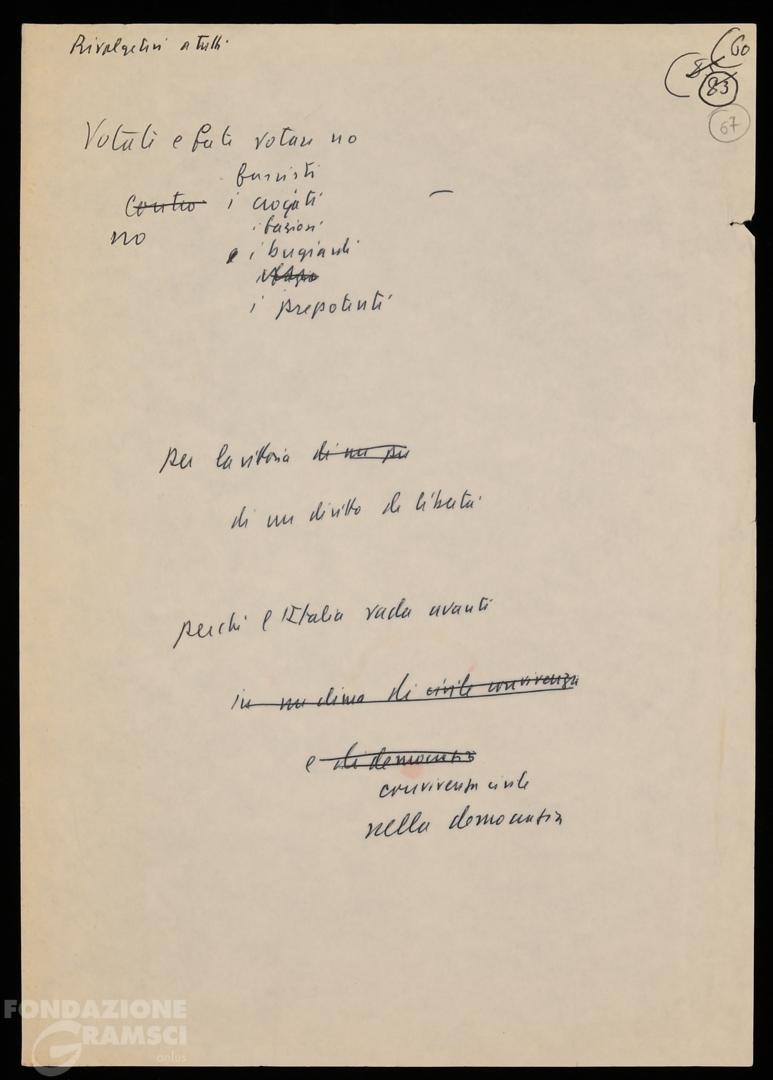 Rivolgetevi a tutti
60
85
83
67
Votate e fate votare no
fascisti
contro i crociati
no i faziosi
e i bugiardi
i prepotenti
per la vittoria di un pr
di un diritto di libertà
perché l'Italia vada avanti
in un clima di civile convivenza
e di democrazia
convivenza civile
nella democrazia
FONDAZIONE
GRAMSCI
onlus